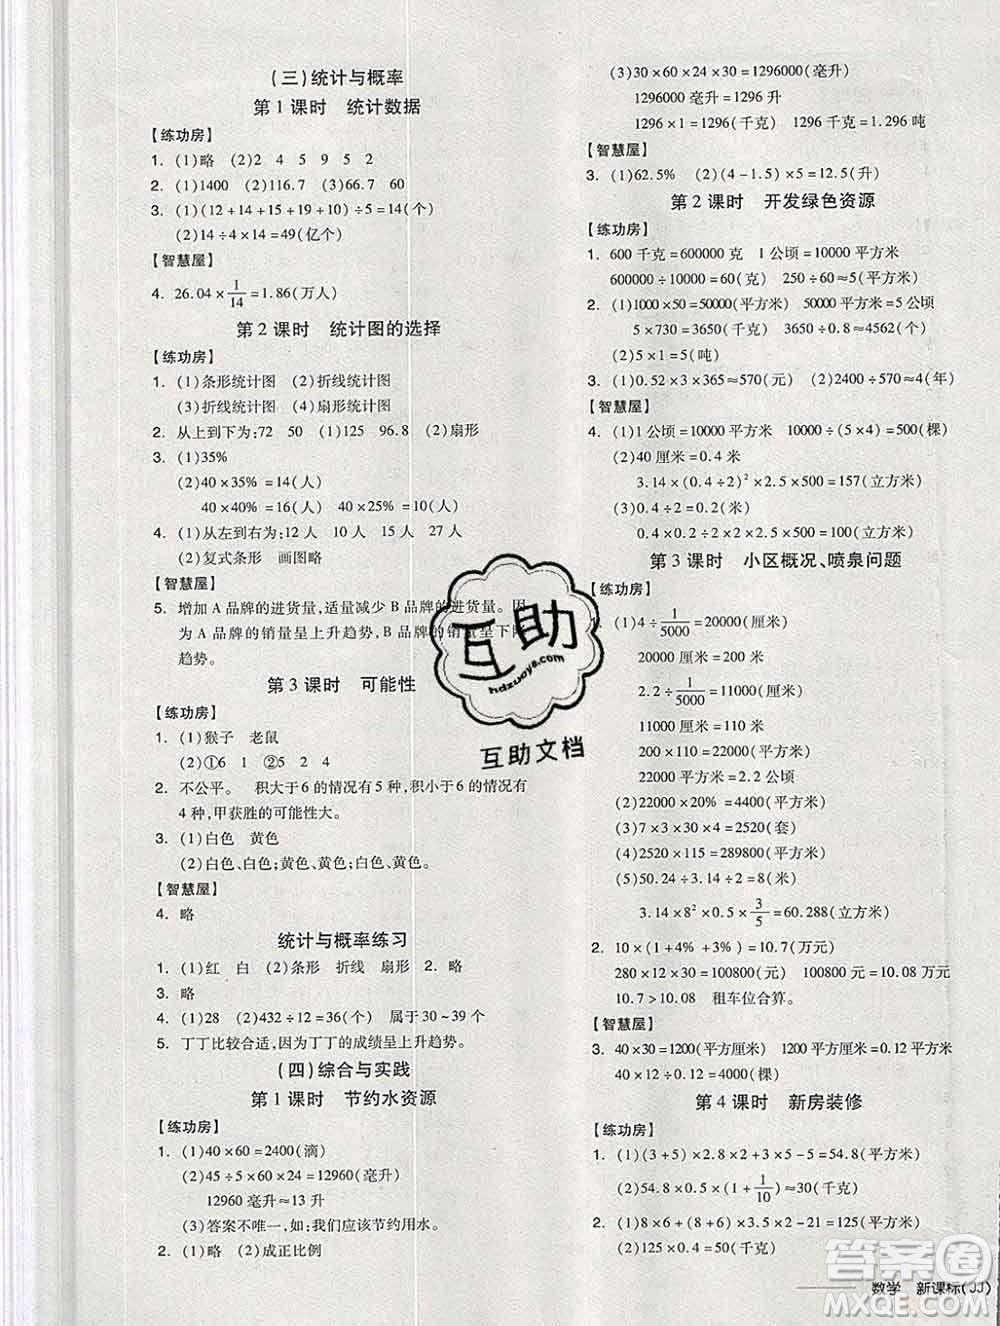 (三)统计与概率
第1课时 统计数据
【练功房】
1. (1)略 (2)2 4 5 9 5 2
2. (1)1400 (2)116.7 (3)66.7 60
3. (1)(12+14+15+19+10)÷5=14(个)
(2)14÷4×14=49(亿个)
【智慧屋】
4. 26.04×1/14=1.86(万人)
第2课时 统计图的选择
【练功房】
1. (1)条形统计图 (2)折线统计图
(3)折线统计图 (4)扇形统计图
2. 从上到下为:72 50 (1)125 96.8 (2)扇形
3. (1)35%
(2)40×35%=14(人)
40×40%=16(人) 40×25%=10(人)
4. (1)从左到右为:12人 10人 15人 27人
(2)复式条形 画图略
【智慧屋】
5. 增加A品牌的进货量,适量减少B品牌的进货量。因
为A品牌的销量呈上升趋势,B品牌的销量呈下降
趋势。
第3课时 可能性
【练功房】
1. (1)猴子 老鼠
(2)①6 1 ②5 2 4
2. 不公平。 积大于6的情况有5种,积小于6的情况有
4种,甲获胜的可能性大。
3. (1)白色 黄色
(2)白色、白色;黄色、黄色;白色、黄色。
【智慧屋】
4. 略
统计与概率练习
1. (1)红 白 (2)条形 折线 扇形 2. 略
3. 略
4. (1)28 (2)432÷12=36(个) 属于30~39个
5. 丁丁比较合适,因为丁丁的成绩呈上升趋势。
(四)综合与实践
第1课时 节约水资源
【练功房】
1. (1)40×60=2400(滴)
(2)45÷5×60×24=12960(毫升)
12960毫升≈13升
(3)答案不唯一,如:我们应该节约用水。
2. (1)略 (2)成正比例
(3)30×60×24×30=1296000(毫升)
1296000毫升=1296升
1296×1=1296(千克) 1296千克=1.296吨
【智慧屋】
3. (1)62.5% (2)(4-1.5)×5=12.5(升)
第2课时 开发绿色资源
【练功房】
1. 600千克=600000克 1公顷=10000平方米
600000÷10000=60(克) 250÷60≈5(平方米)
2. (1)1000×50=50000(平方米) 50000平方米=5公顷
5×730=3650(千克) 3650÷0.8≈4562(个)
(2)5×1=5(吨)
3. (1)0.52×3×365≈570(元) (2)2400÷570≈4(年)
【智慧屋】
4. (1)1公顷=10000平方米 10000÷(5×4)=500(棵)
(2)40厘米=0.4米
3.14×(0.4÷2)²×2.5×500=157(立方米)
(3)0.4÷2=0.2(米)
0.4×0.2×2.5×2×500=200(立方米)
第3课时 小区概况、喷泉问题
【练功房】
1. (1)4÷1/5000=20000(厘米)
20000厘米=200米
2.2÷1/5000=11000(厘米)
11000厘米=110米
200×110=22000(平方米)
22000平方米=2.2公顷
(2)22000×20%=4400(平方米)
(3)7×3×30×4=2520(套)
(4)2520×115=289800(平方米)
(5)50.24÷3.14÷2=8(米)
3.14×8²×0.5×3/5=60.288(立方米)
2. 10×(1+4%+3%)=10.7(万元)
280×12×30=100800(元) 100800元=10.08万元
10.7>10.08 租车位合算。
【智慧屋】
3. 40×30=1200(平方厘米) 1200平方厘米=0.12平方米
40×12÷0.12=4000(棵)
第4课时 新房装修
【练功房】
1. (1)(3+5)×2.8×2+3×5-5=54.8(平方米)
(2)54.8×0.5×(1+1/10)≈30(千克)
2. (1)8×6+(8+6)×3×2-3-2-2=125(平方米)
(2)125×0.4=50(千克)
数学 新课标(JJ)
互助
hdzuoye.com
互助文档
答案圈
MXQE.COM